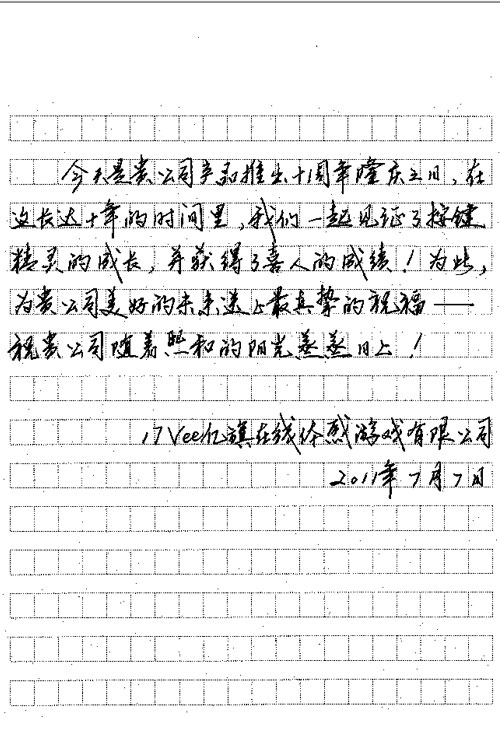 今天是贵公司产品推出十周年隆庆之日，在
这长达十年的时间里，我们一起见证了按键
精灵的成长，并获得了喜人的成绩！为此，
为贵公司美好的未来送上最真挚的祝福——
祝贵公司随着熙和的阳光蒸蒸日上！
17Vee亿旗在线体感游戏有限公司
2011年7月7日